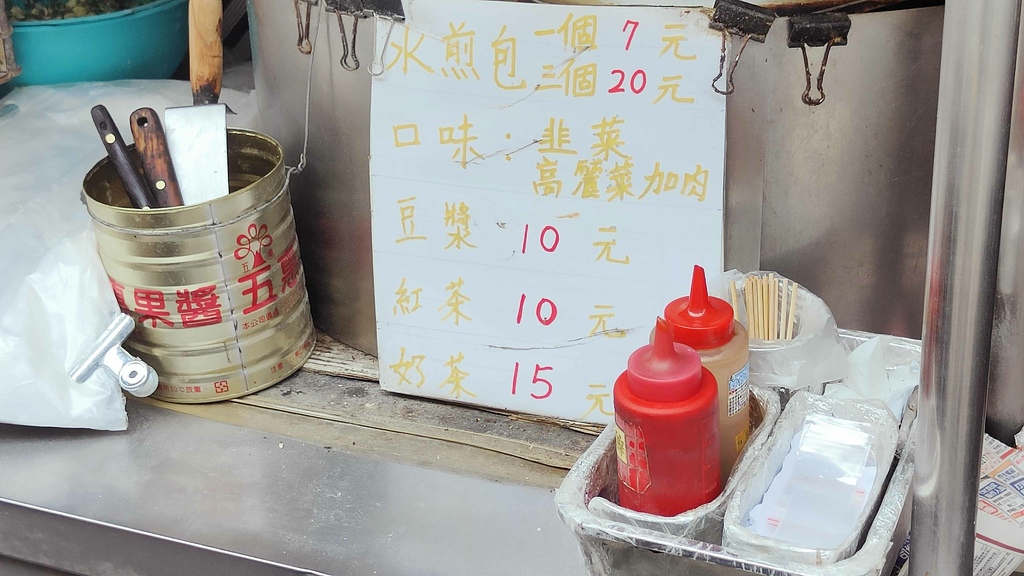 水煎包 一個 7 元
三個 20 元
口味：韭菜
高麗菜加肉
豆漿 10 元
紅茶 10 元
奶茶 15 元
果醬 五惠
本公司
注意